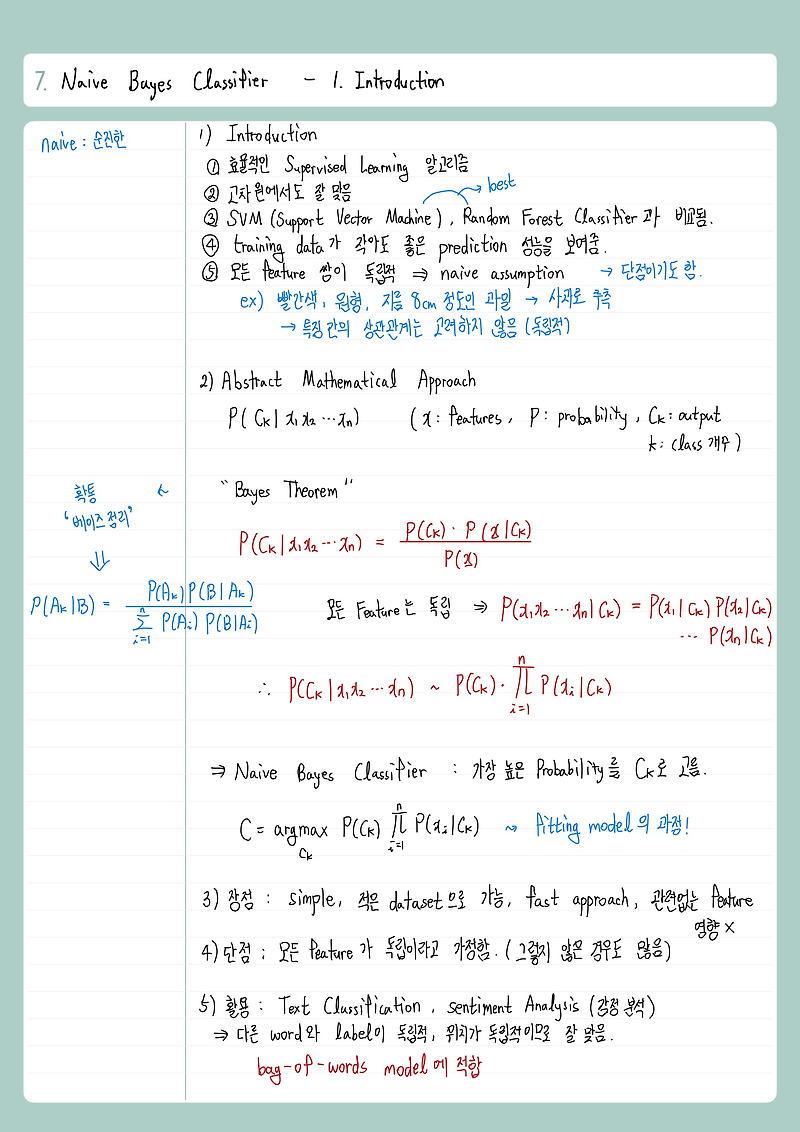 7. Naive Bayes Classifier - 1. Introduction
naive : 순진한
1) Introduction
① 효율적인 Supervised Learning 알고리즘
② 고차원에서도 잘 맞음
→ best
③ SVM (Support Vector Machine), Random Forest Classifier과 비교됨.
④ training data가 작아도 좋은 prediction 성능을 보여줌.
⑤ 모든 feature 쌍이 독립적 ⇒ naive assumption → 단점이기도 함.
ex) 빨간색, 원형, 지름 8cm 정도인 과일 → 사과로 추측
→ 특징 간의 상관관계는 고려하지 않음 (독립적)
2) Abstract Mathematical Approach
P(Ck | x1x2 ⋯ xn) (x : features, P : probability, Ck : output
k : class 개수)
확통 ← "Bayes Theorem"
'베이즈 정리'
⇓
P(Ck | x1x2 ⋯ xn) = P(Ck) · P(x | Ck) / P(x)
P(Ak | B) = P(Ak) P(B | Ak) / Σ_{i=1}^{n} P(Ai) P(B | Ai)
모든 Feature는 독립 ⇒ P(x1x2 ⋯ xn | Ck) = P(x1 | Ck) P(x2 | Ck)
⋯ P(xn | Ck)
∴ P(Ck | x1x2 ⋯ xn) ~ P(Ck) · ∏_{i=1}^{n} P(xi | Ck)
⇒ Naive Bayes Classifier : 가장 높은 Probability를 Ck로 고름.
C = argmax_{Ck} P(Ck) ∏_{i=1}^{n} P(xi | Ck) ~> fitting model의 과정!
3) 장점 : simple, 적은 dataset으로 가능, fast approach, 관련없는 feature
영향 X
4) 단점 : 모든 feature가 독립이라고 가정함. (그렇지 않은 경우도 많음)
5) 활용 : Text Classification, sentiment Analysis (감정 분석)
⇒ 다른 word와 label이 독립적, 위치가 독립적이므로 잘 맞음.
bag-of-words model에 적합